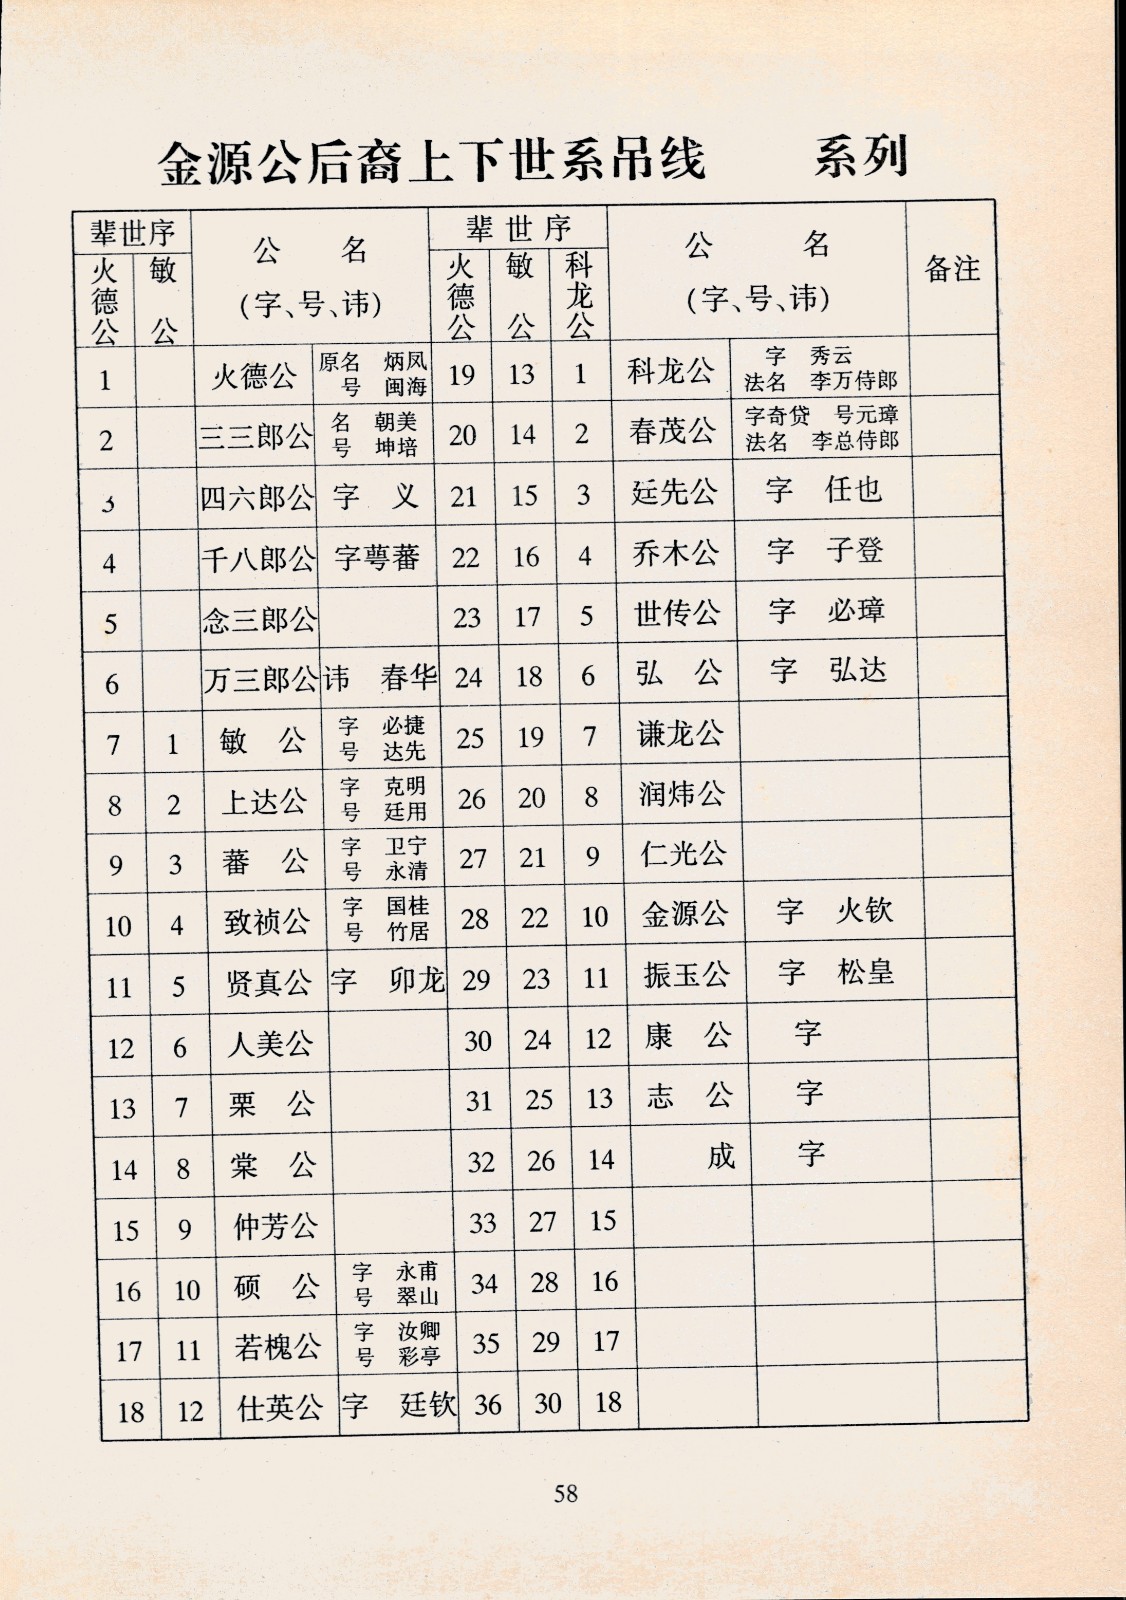 金源公后裔上下世系吊线 系列
辈世序 公 名 辈 世 序 公 名 备注
火德公 敏公 (字、号、讳) 火德公 敏公 科龙公 (字、号、讳)
1 火德公 原名 炳凤 号 闽海 19 13 1 科龙公 字 秀云 法名 李万侍郎
2 三三郎公 名 朝美 号 坤培 20 14 2 春茂公 字奇贷 号元璋 法名 李总侍郎
3 四六郎公 字 义 21 15 3 廷先公 字 任也
4 千八郎公 字萼蕃 22 16 4 乔木公 字 子登
5 念三郎公 23 17 5 世传公 字 必璋
6 万三郎公 讳 春华 24 18 6 弘 公 字 弘达
7 1 敏 公 字 必捷 号 达先 25 19 7 谦龙公
8 2 上达公 字 克明 号 廷用 26 20 8 润炜公
9 3 蕃 公 字 卫宁 号 永清 27 21 9 仁光公
10 4 致祯公 字 国桂 号 竹居 28 22 10 金源公 字 火钦
11 5 贤真公 字 卯龙 29 23 11 振玉公 字 松皇
12 6 人美公 30 24 12 康 公 字
13 7 栗 公 31 25 13 志 公 字
14 8 棠 公 32 26 14 成 字
15 9 仲芳公 33 27 15
16 10 硕 公 字 永甫 号 翠山 34 28 16
17 11 若槐公 字 汝卿 号 彩亭 35 29 17
18 12 仕英公 字 廷钦 36 30 18
58